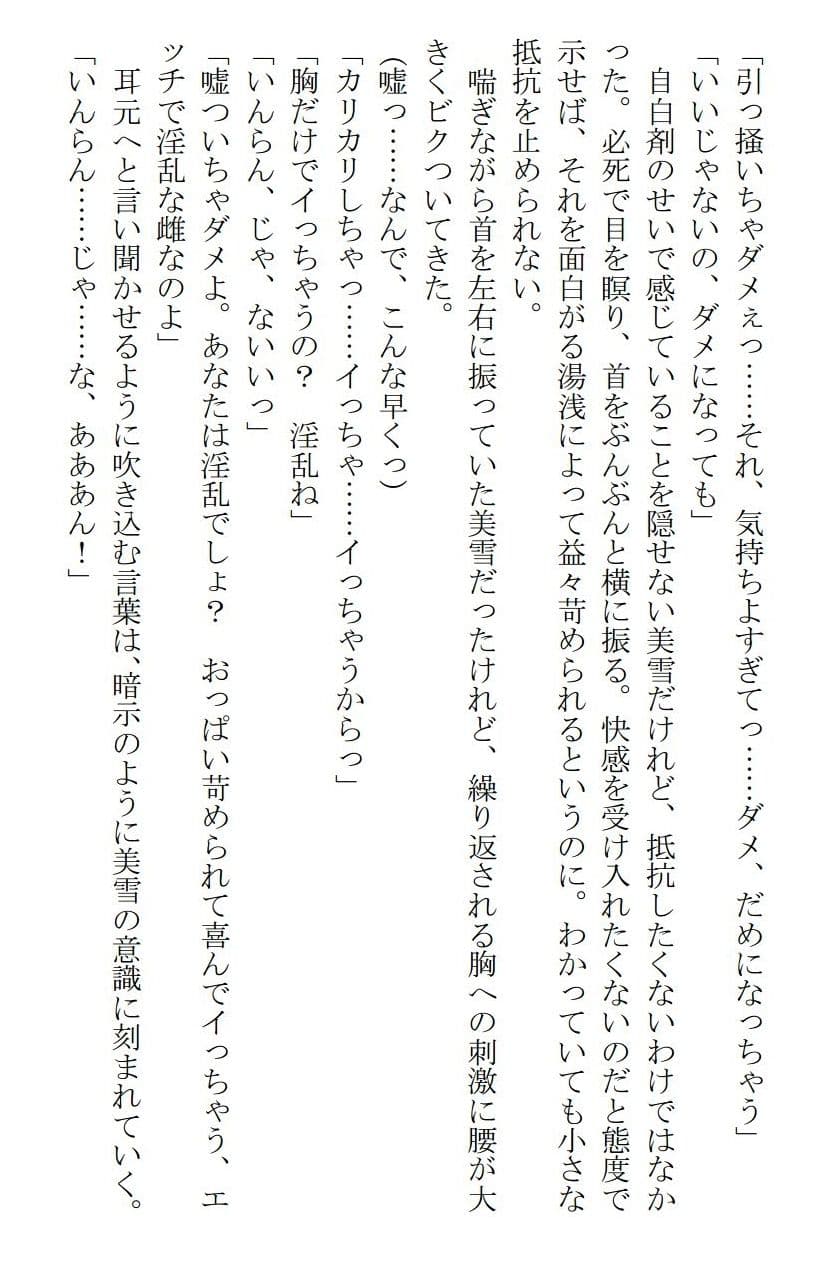 「引っ掻いちゃダメぇっ……それ、気持ちよすぎてっ……ダメ、だめになっちゃう」
「いいじゃないの、ダメになっても」
　自白剤のせいで感じていることを隠せない美雪だけれど、抵抗したくないわけではなか
った。必死で目を瞑り、首をぶんぶんと横に振る。快感を受け入れたくないのだと態度で
示せば、それを面白がる湯浅によって益々苛められるというのに。わかっていても小さな
抵抗を止められない。
　喘ぎながら首を左右に振っていた美雪だったけれど、繰り返される胸への刺激に腰が大
きくビクついてきた。
(嘘っ……なんで、こんな早くっ)
「カリカリしちゃっ……イっちゃ……イっちゃうからっ」
「胸だけでイっちゃうの？　淫乱ね」
「いんらん、じゃ、ないいっ」
「嘘ついちゃダメよ。あなたは淫乱でしょ？　おっぱい苛められて喜んでイっちゃう、エ
ッチで淫乱な雌なのよ」
　耳元へと言い聞かせるように吹き込む言葉は、暗示のように美雪の意識に刻まれていく。
「いんらん……じゃ……な、あああん！」